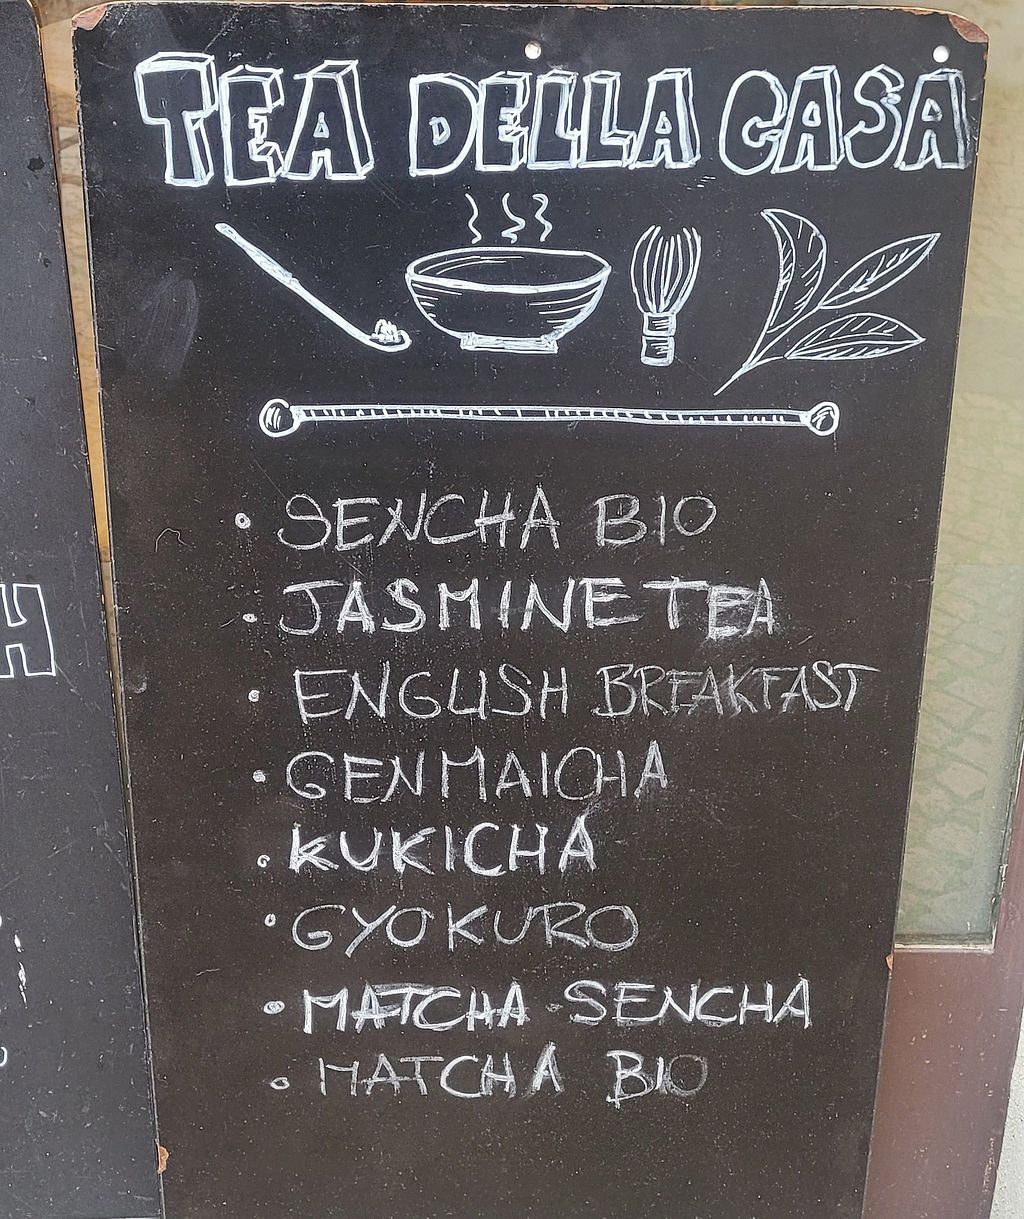 TEA DELLA CASA
• SENCHA BIO
• JASMINE TEA
• ENGLISH BREAKFAST
• GENMAICHA
• KUKICHA
• GYOKURO
• MATCHA-SENCHA
• MATCHA BIO
H